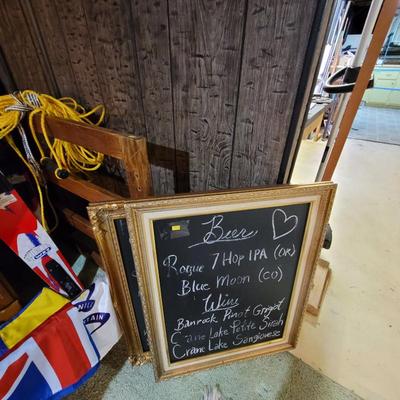 Beer
Rogue 7 Hop IPA (OR)
Blue Moon (CO)
Wine
Banrock Pinot Grigot
Crane Lake Petite Sirah
Crane Lake Sangiovese